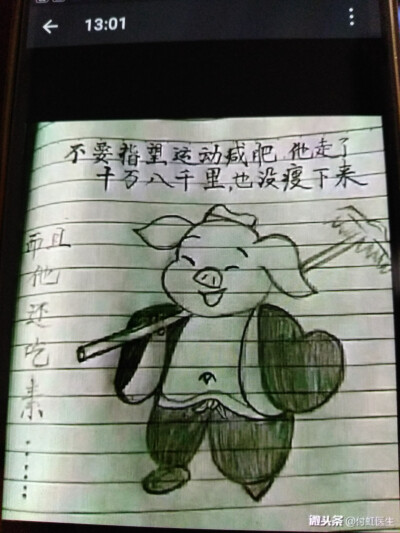 13:01
不要指望运动减肥,他走了
十万八千里,也没瘦下来
而且
他
还
吃
素
......
头条@付虹医生